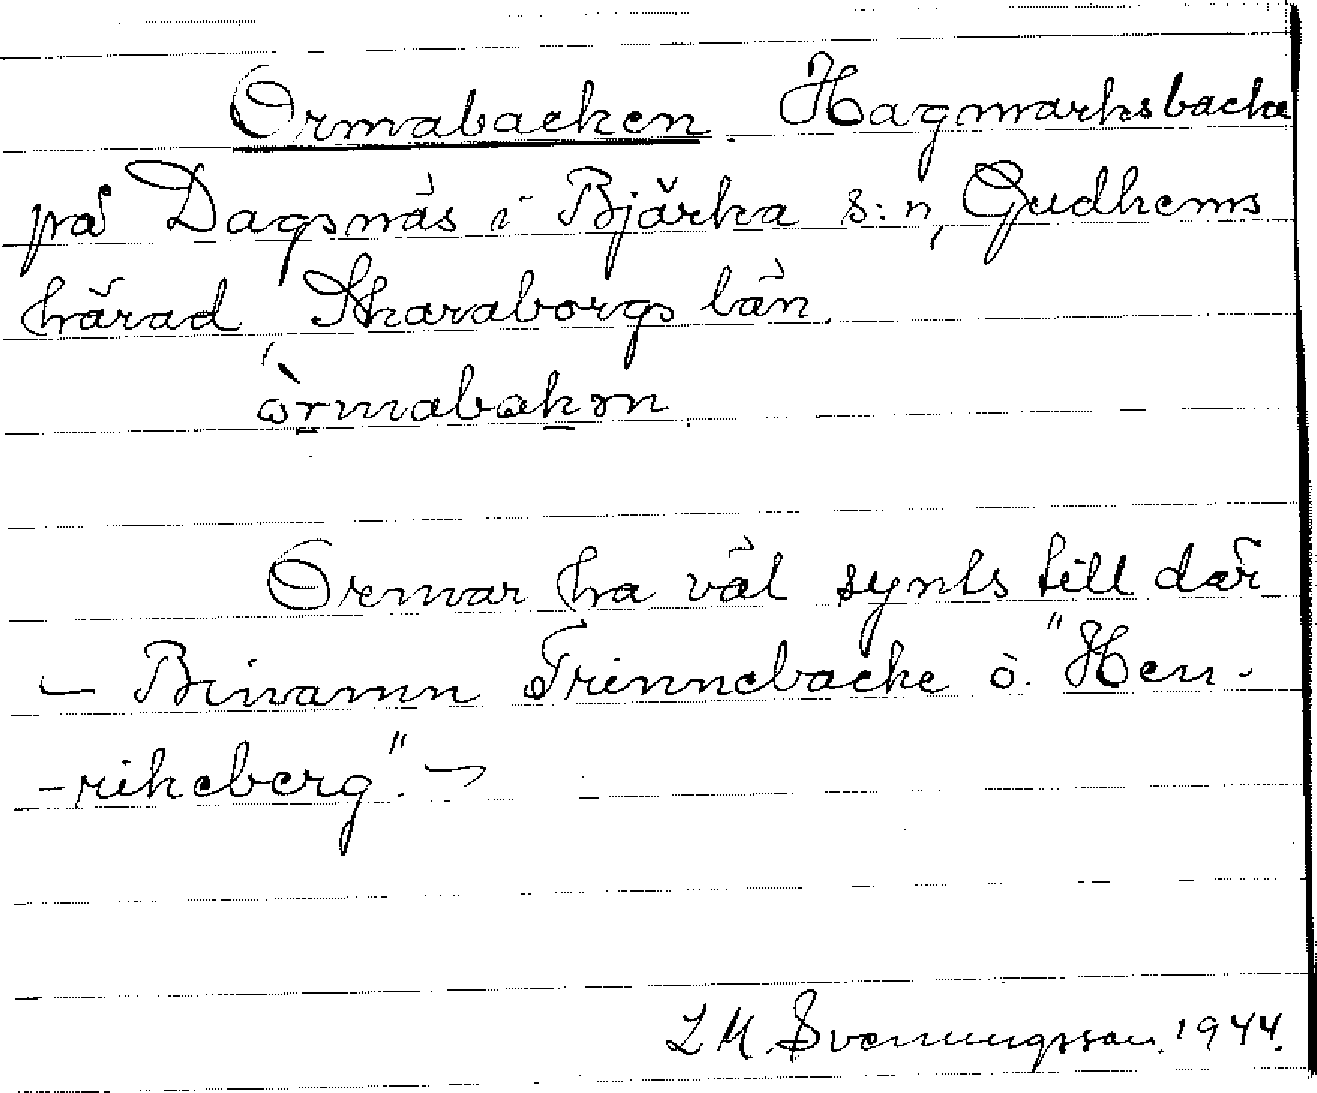 Ormabacken. Hagmarksbacke
på Dagsnäs i Bjärka s:n, Gudhems
härad, Skaraborgs län.
òrmabakən.
Ormar ha väl synts till där
– Binamn Trinnebacke o. "Hen-
-rikeberg". –
L M. Svenungsson. 1944.